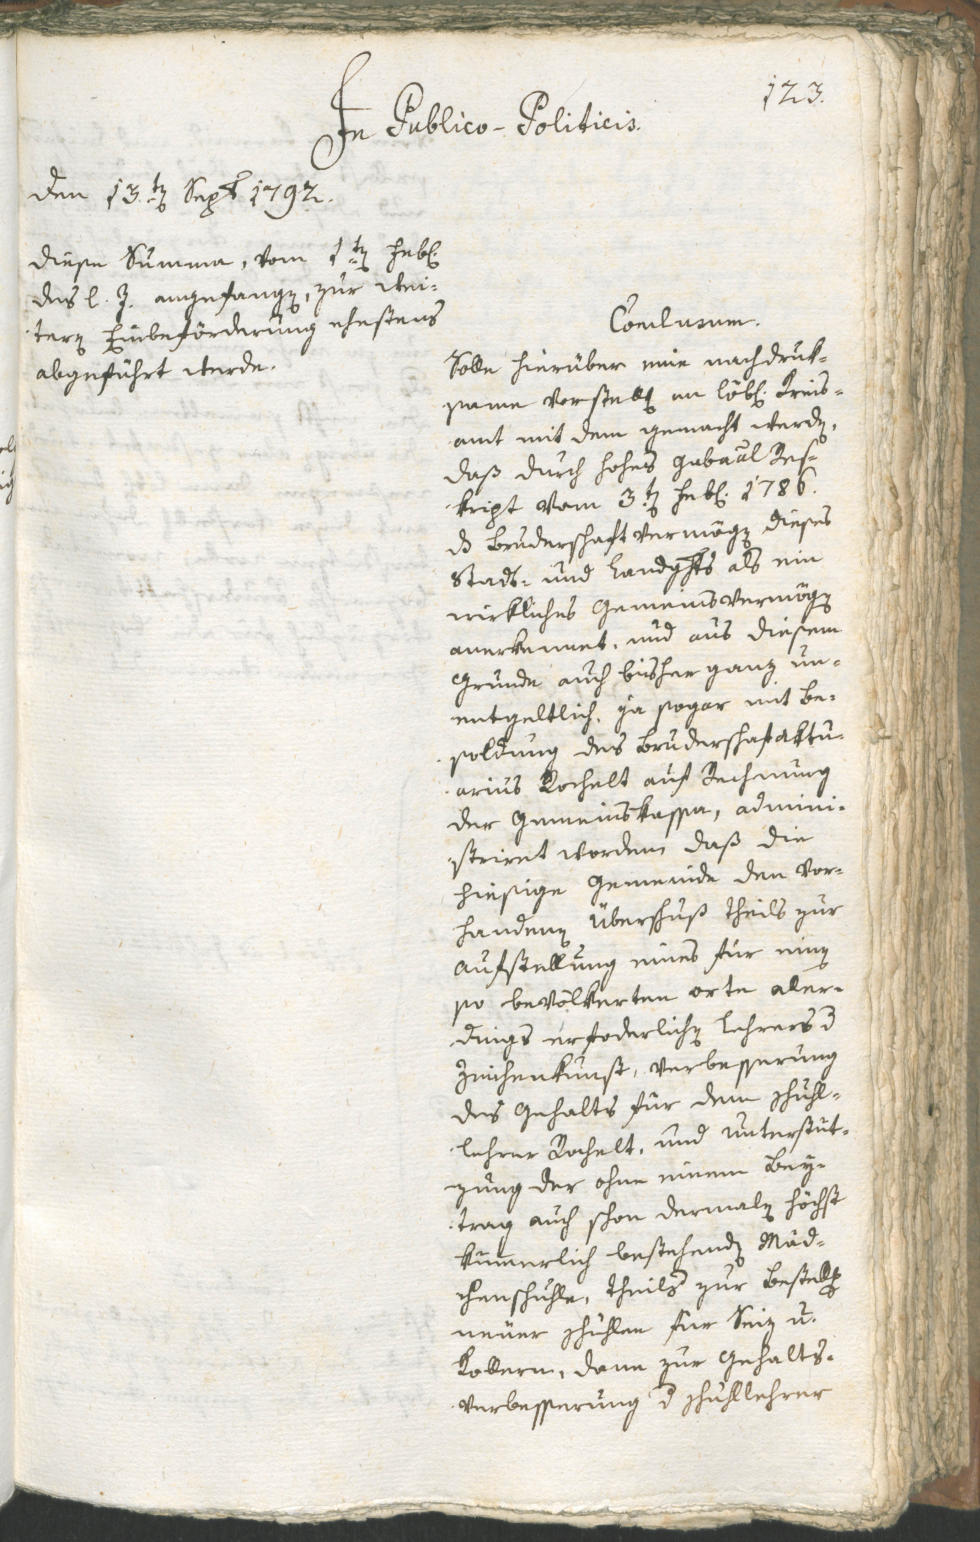 123.
In Publico-Politicis.
den 13.ten Sept 1792.
diese Summa, vom 1ten Febl.
des l. J. angefangen, zur wei=
teren Einbeförderung ehestens
abgeführt werde.
Conclusum.
Solle hierüber eine nachdruk=
same Vorstellg an löbl. Kreis=
amt mit dem gemacht werden,
daß durch hohes Gubaal Res=
kript vom 3.ten Febl. 1786.
ds Bruderschaft vermögen dieses
Stadt= und Landghts als ein
wirkliches Gemeinsvermögen
anerkennet, und aus diesem
Grunde auch bisher ganz un=
entgeltlich, ja sogar mit Be=
soldung des Bruderschaftaktu=
arius Rochelt auf Rechnung
der Gemeinskassa, admini=
striret worden daß die
hiesige Gemeinde den vor=
handenen Überschuß theils zur
Aufstellung eines für einen
so bevölkerten orte aller=
dings erfoderlichen Lehrers d
Zeichenkunst, Verbesserung
des Gehalts für dem Schuhl=
lehrer Rochelt, und Unterstüt=
zung der ohne einem Bey=
trag auch schon dermalen höchst
kümmerlich bestehenden Mäd=
chenschuhle, theils zur Bestellg
neuer Schuhlen für Seiz u.
Kollern, dann zur Gehalts=
verbesserung d Schuhllehrer